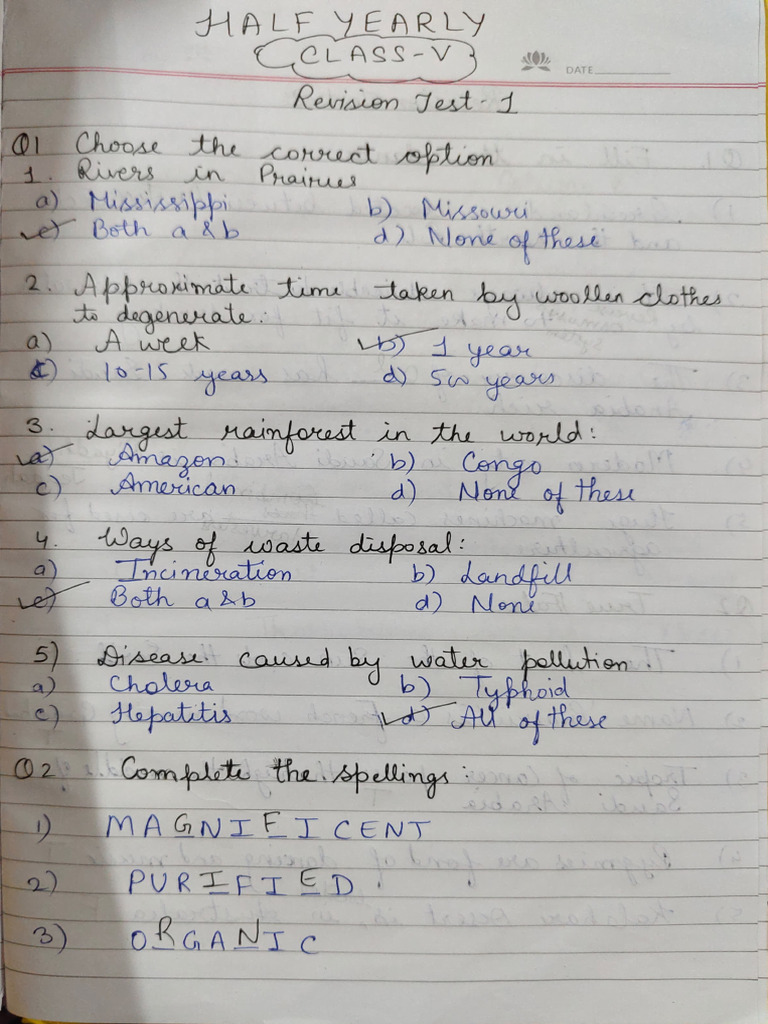 HALF YEARLY
CLASS-V
DATE
Revision Test-1
Q1 Choose the correct option
1. Rivers in Prairies
a) Mississippi b) Missouri
c) Both a & b d) None of these
2. Approximate time taken by woollen clothes
to degenerate:
a) A week b) 1 year
c) 10-15 years d) 500 years
3. Largest rainforest in the world:
a) Amazon b) Congo
c) American d) None of these
4. Ways of waste disposal:
a) Incineration b) Landfill
c) Both a & b d) None
5) Disease caused by water pollution.
a) Cholera b) Typhoid
c) Hepatitis d) All of these
Q2 Complete the spellings:
1) MAGNIFICENT
2) PURIFIED
3) ORGANIC